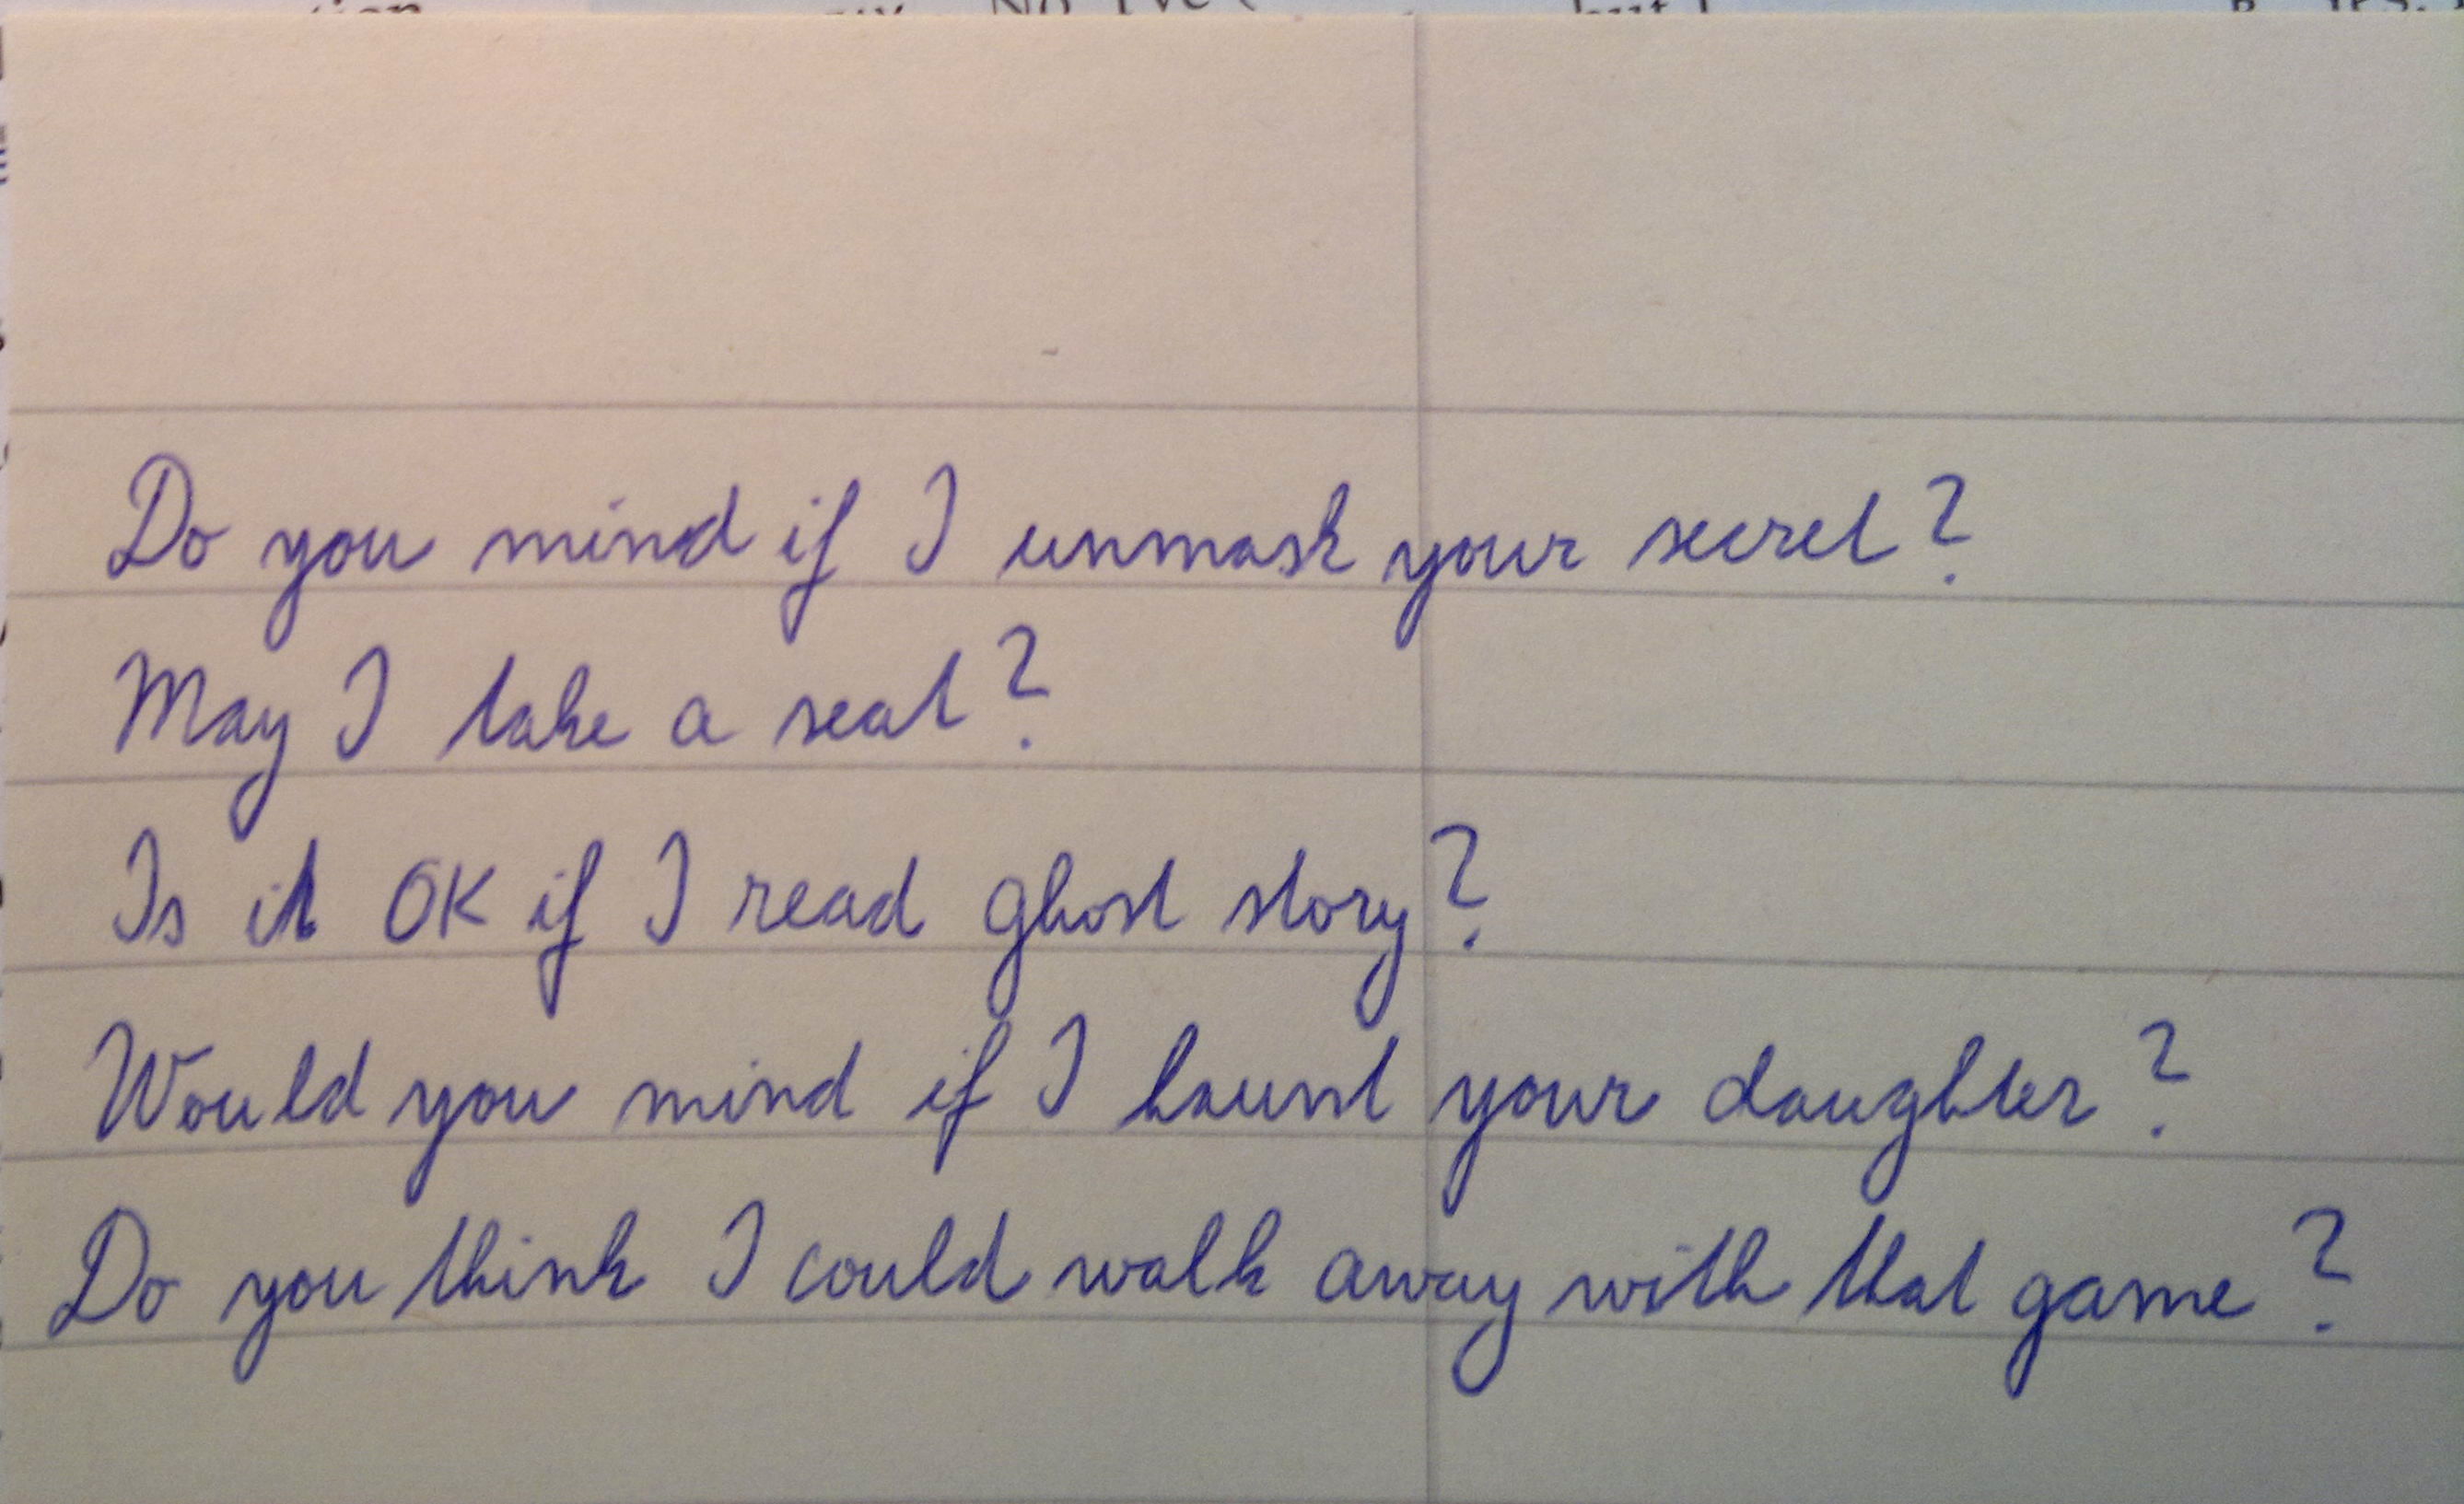 Do you mind if I unmask your secret?
May I take a seat?
Is it OK if I read ghost story?
Would you mind if I haunt your daughter?
Do you think I could walk away with that game?